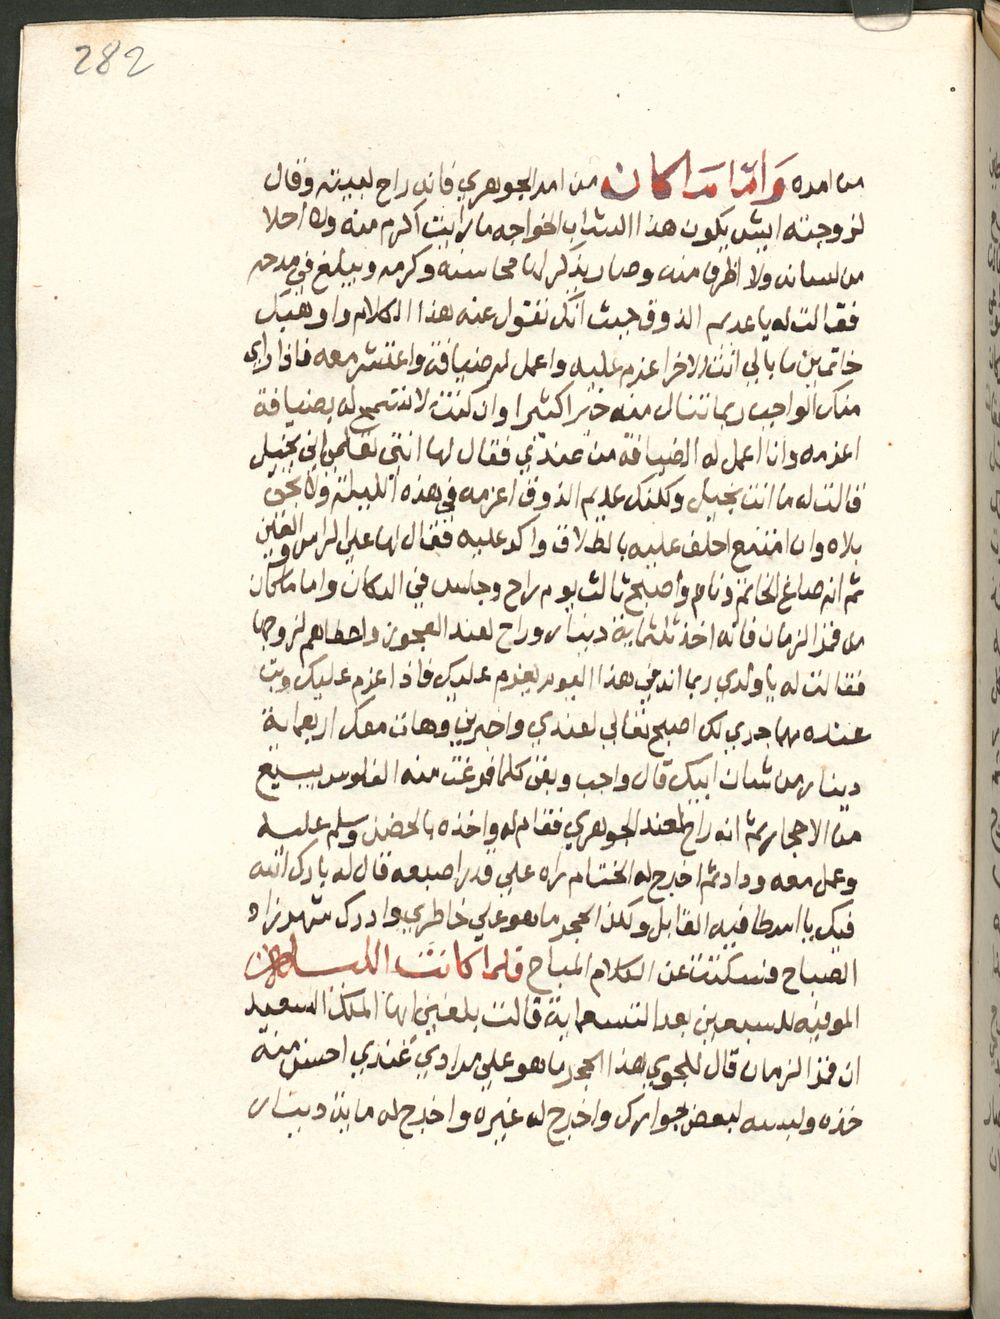 282
من امره وَامّا مَا كان من امر الجوهري فانه راح لبيته وقال
لزوجته ايش يكون هذا الشاب الخواجه ما رايت اكرم منه ولا احلا
من لسانه ولا اظرف منه وصار يذكر لها محاسنه وكرمه ويبلغ في مدحه
فقالت له يا عديم الذوق حيث انك تقول عنه هذا الكلام واوهبك
خاتمين ما بالي انت الاخر اعزم عليه واعمل له ضيافة واعتشر معه فاذا راي
منك الواجب ربما تنال منه خيرا كثيرا وان كنت لا تسمح له بضيافة
اعزمه وانا اعمل له الضيافة من عندي فقال لها انتي تعلمي اني بخيل
قالت له ما انت بخيل ولكنك عديم الذوق اعزمه في هذه الليلة ولا تجي
بلاه وان امتنع احلف عليه بالطلاق واكد عليه فقال لها علي الراس والعين
ثم انه صاغ الخاتم ونام واصبح ثالث يوم راح وجلس في الدكان واما ما كان
من قمر الزمان فانه اخذ ثلثماية دينار وراح لعند العجوز واعطاهم لزوجها
فقالت له يا ولدي ربما انه في هذا اليوم يعزم عليك فاذا عزم عليك وبت
عنده مهما جري لك اصبح تعالي لعندي واخبرني وهات معك اربعماية
دينار من شان ابيك قال واجب وبقى كلما فرغت منه الفلوس يبيع
من الاحجار ثم انه راح لعند الجوهري فقام له واخذه بالحضن وسلم عليه
وعمل معه وداد ثم اخرج له الختام راه علي قدر اصبعه قال له بارك الله
فيك يا اسطا فيه القابل ولكن الحجر ما هو علي خاطري وادرك شهرزاد
الصباح فسكتت عن الكلام المباح فلما كانت الليلة
الموفيه للسبعين بعد التسعماية قالت بلغني ايها الملك السعيد
ان قمر الزمان قال للجوهري هذا الحجر ما هو علي مرادي عندي احسن منه
خذه ولبسه لبعض جوارك واخرج له غيره واخرج له ماية دينار